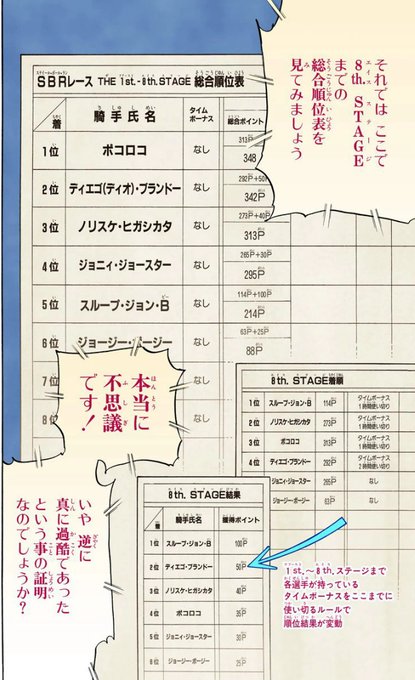 それでは ここで
8th. STAGE
までの
総合順位表を
見てみましょう
SBRレース THE 1st.-8th. STAGE 総合順位表
着 騎手氏名 タイムボーナス 総合ポイント
1位 ポコロコ なし 313P 348
2位 ディエゴ(ディオ)・ブランドー なし 292P+50P 342P
3位 ノリスケ・ヒガシカタ なし 273P+40P 313P
4位 ジョニィ・ジョースター なし 265P+30P 295P
5位 スループ・ジョン・B なし 114P+100P 214P
6位 ジョージー・ポージー なし 63P+25P 88P
7位
8位
本当に
不思議
です!
8th. STAGE着順
1位 スループ・ジョン・B 114P タイムボーナス 1時間使い切り
2位 ノリスケ・ヒガシカタ 273P タイムボーナス 1時間使い切り
3位 ポコロコ 313P タイムボーナス
4位 ディエゴ・ブランドー 292P タイムボーナス
ジョニィ・ジョースター 265P なし
ジョージー・ポージー 63P なし
8th. STAGE結果
着 騎手氏名 獲得ポイント
1位 スループ・ジョン・B 100P
2位 ディエゴ・ブランドー 50P
3位 ノリスケ・ヒガシカタ 40P
4位 ポコロコ 35P
5位 ジョニィ・ジョースター 30P
6位 ジョージー・ポージー 25P
1st.〜8th.ステージまで
各選手が持っている
タイムボーナスをここまでに
使い切るルールで
順位結果が変動
いや 逆に
真に過酷であった
という事の証明
なのでしょうか?